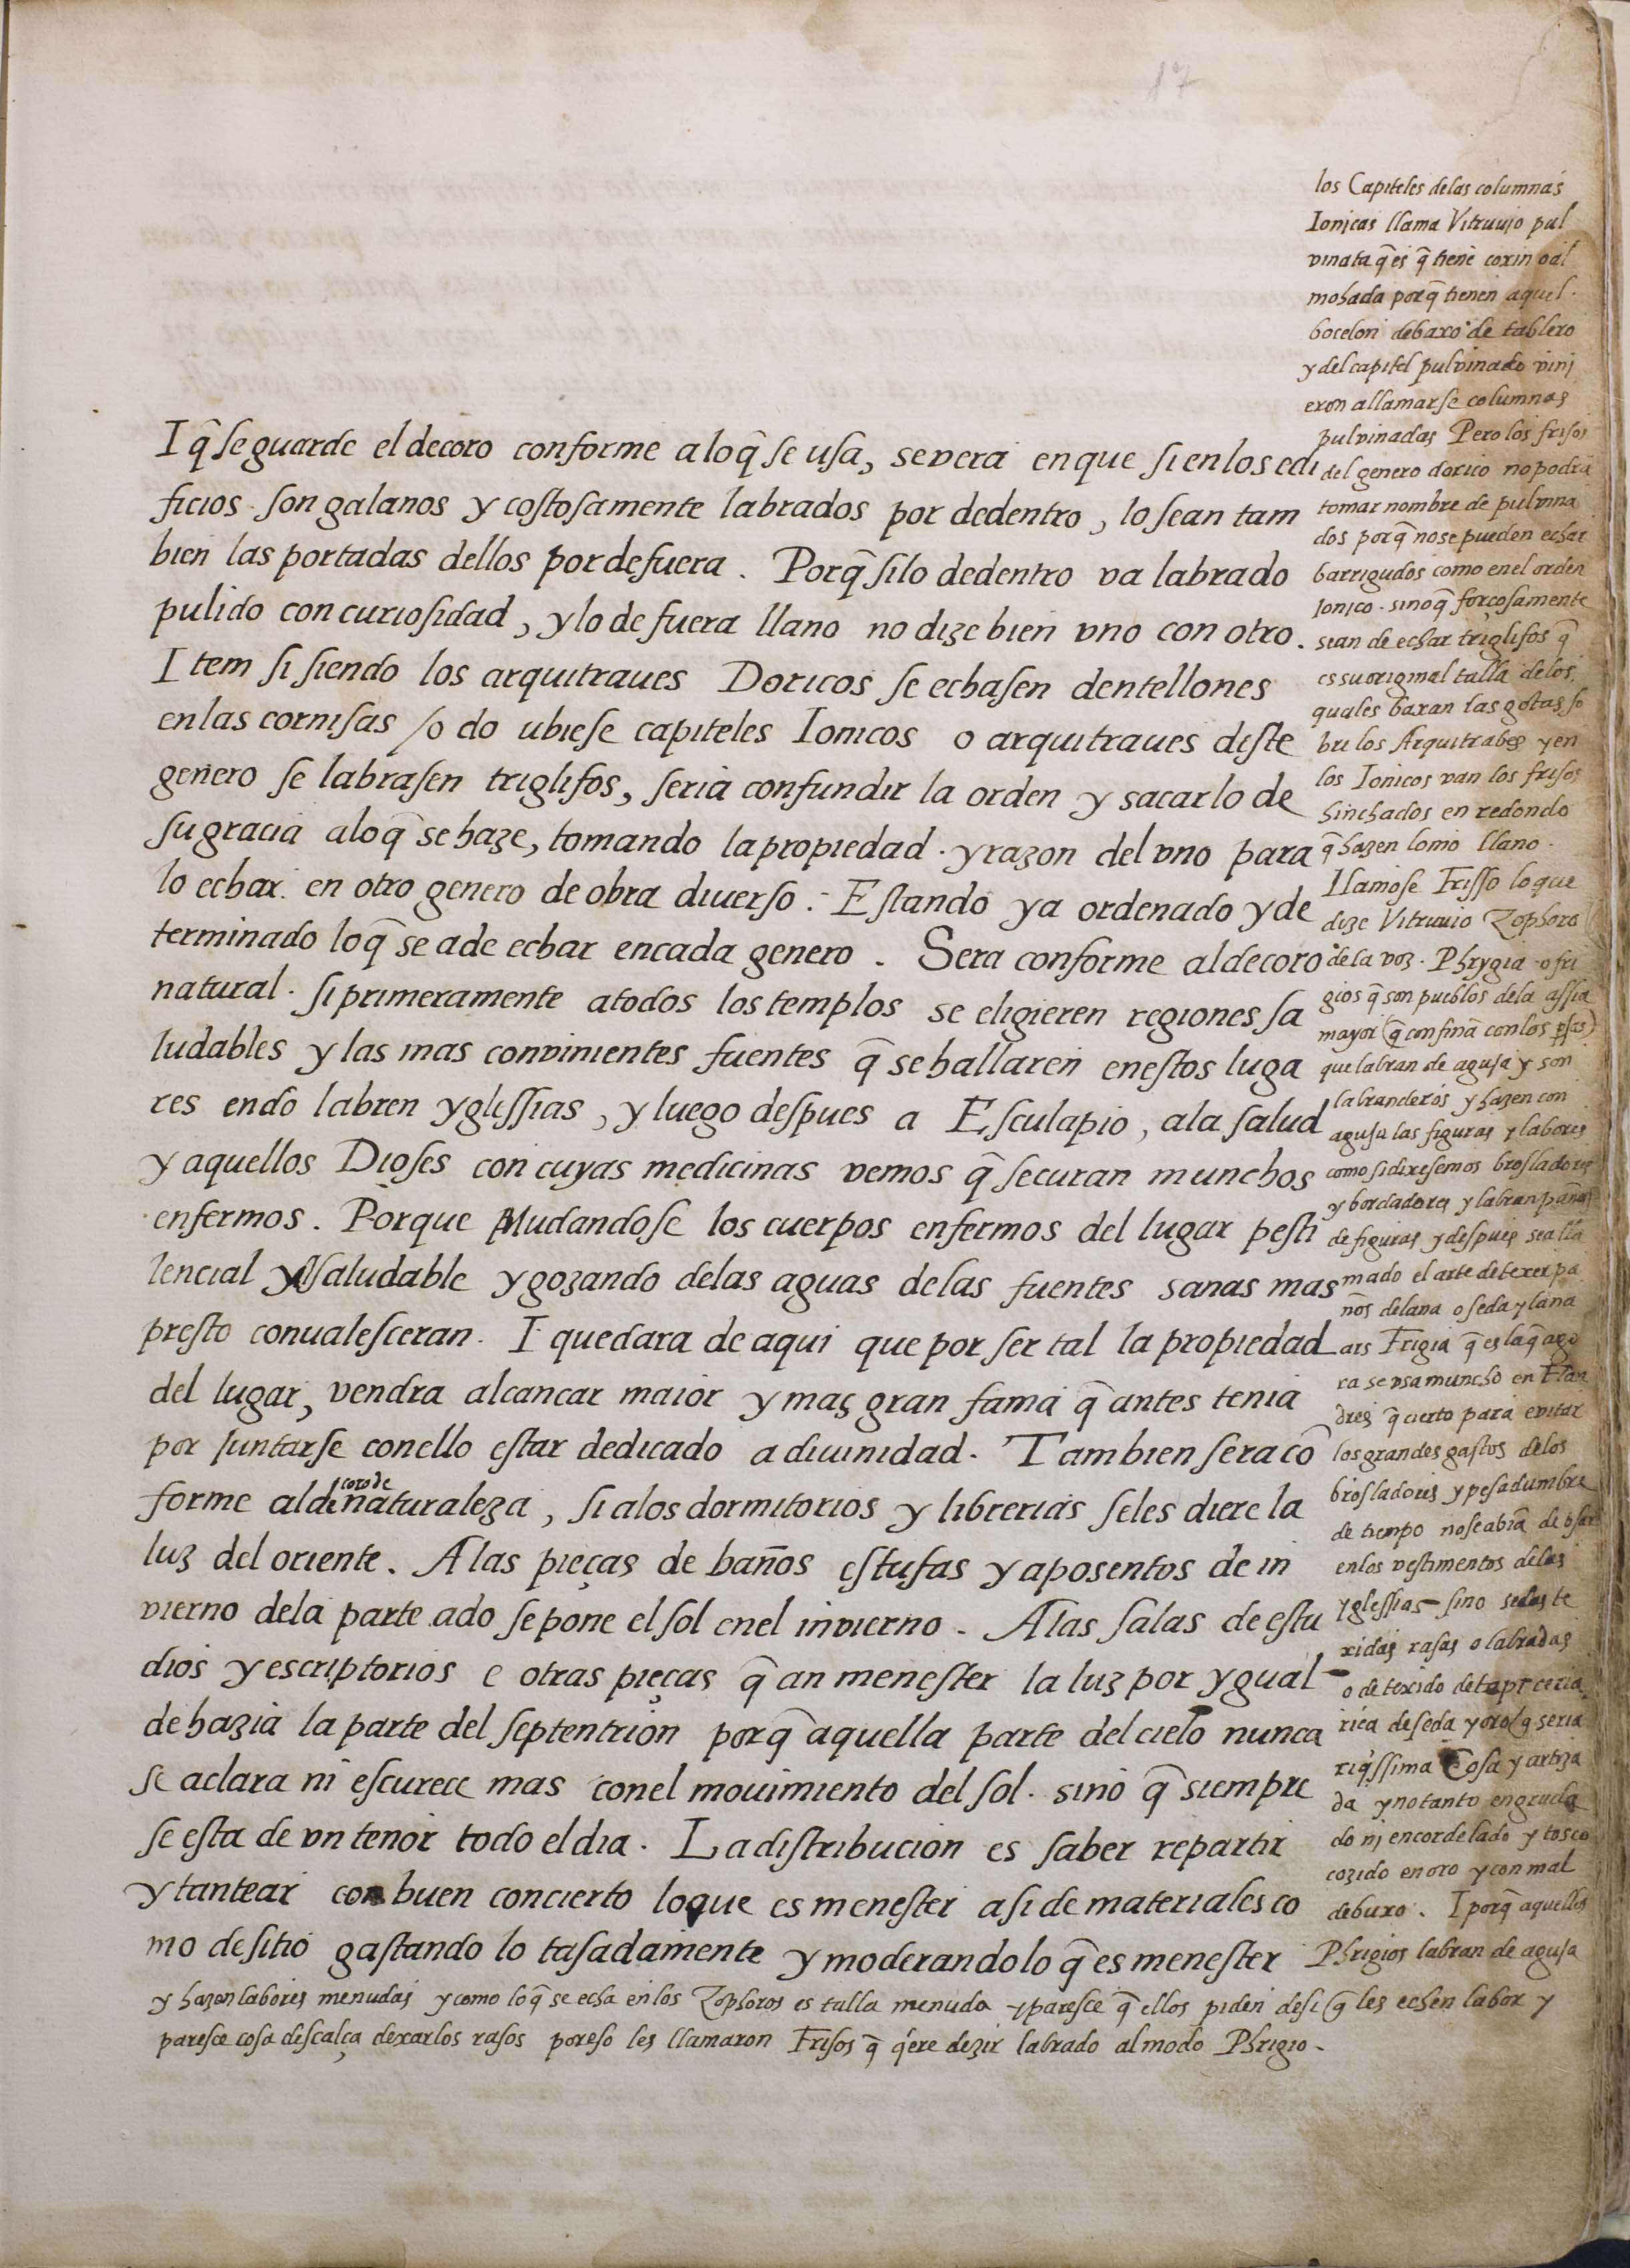 17
I q̃ se guarde el decoro conforme a lo q̃ se usa, se vera en que si en los edi
ficios son galanos y costosamente labrados por de dentro, lo sean tam
bien las portadas dellos por de fuera. Porq̃ si lo de dentro va labrado
pulido con curiosidad, y lo de fuera llano no dize bien vno con otro.
Item si siendo los arquitraues Doricos se echasen dentellones
en las cornisas / o do ubiese capiteles Ionicos o arquitraues deste
genero se labrasen triglifos, seria confundir la orden y sacarlo de
su gracia a lo q̃ se haze, tomando la propiedad. y razon del vno para
lo echar. en otro genero de obra diuerso. Estando ya ordenado y de
terminado lo q̃ se a de echar en cada genero. Sera conforme al decoro
natural. si primeramente a todos los templos se eligieren regiones sa
ludables y las mas convinientes fuentes q̃ se hallaren en estos luga
res endo labren yglessias, y luego despues a Esculapio, a la salud
y aquellos Dioses con cuyas medicinas vemos q̃ se curan munchos
enfermos. Porque Mudandose los cuerpos enfermos del lugar pesti
lencial al saludable y gozando de las aguas de las fuentes sanas mas
presto conualesceran. I quedara de aqui que por ser tal la propiedad
del lugar, vendra alcancar maior y mas gran fama q̃ antes tenia
por juntarse con ello estar dedicado a diuinidad. Tambien sera cõ
forme al decoro de naturaleza, si a los dormitorios y librerias se les diere la
luz del oriente. A las pieças de baños estufas y aposentos de in
vierno de la parte ado se pone el sol en el invierno. A las salas de estu
dios y escriptorios e otras pieças q̃ an menester la luz por ygual
de hazia la parte del septentrion porq̃ aquella parte del cielo nunca
se aclara ni escurece mas con el mouimiento del sol. sino q̃ siempre
se esta de vn tenor todo el dia. La distribucion es saber repartir
y tantear con buen concierto lo que es menester asi de materiales co
mo de sitio gastando lo tasadamente y moderando lo q̃ es menester
los Capiteles de las columnas
Ionicas llama Vitruuio pul
vinata q̃ es q̃ tiene coxin o al
mohada porq̃ tienen aquel
bocelon debaxo de tablero
y del capitel pulvinado vini
eron a llamarse columnas
pulvinadas Pero los frisos
del genero dorico no podra
tomar nombre de pulvina
dos porq̃ no se pueden echar
barrigudos como en el orden
Ionico. sino q̃ forçosamente
sean de echar triglifos q̃
es su original talla de los
quales baxan las gotas so
bre los Arquitrabes y en
los Ionicos van los frisos
hinchados en redondo
q̃ hazen lomo llano.
Llamose Frisso lo que
dize Vitruuio Zophoro
de la voz. Phrygia o fri
gios q̃ son pueblos de la assia
mayor (q̃ confinã con los psas)
que labran de aguja y son
labranderos y hazen con
aguja las figuras y labores
como si dixesemos brosladores
y bordadores y labran paños
de figuras y despues sea lla
mado el arte de texer pa
ños de lana o seda y lana
ars Frigia q̃ es la q̃ ago
ra se vsa muncho en Flan
dres q̃ cierto para evitar
los grandes gastos de los
brosladores y pesadumbre
de tiempo no se abiã de vsar
en los vestimentos de las
yglessias sino sedas te
xidas rasas o labradas
o de texido de tapiceria
rica de seda y oro (q̃ seria
riq̃ssima Cosa y artiza
da y no tanto engruda
do ni encordelado y tosco
cozido en oro y con mal
debuxo. I porq̃ aquellos
Phrigios labran de aguja
y hazen labores menudas y como lo q̃ se echa en los Zophoros es talla menuda y paresce q̃ ellos piden desi q̃ les echen labor y
paresce cosa descalça dexarlos rasos por eso les llamaron Frisos q̃ q̃ere dezir labrado al modo Phrigio.